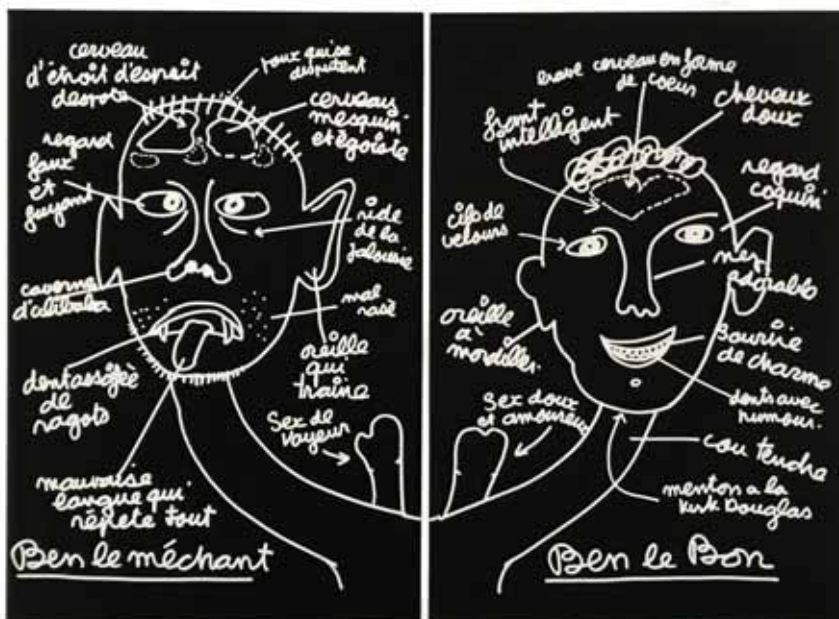 cerveau
d'étroit d'esprit
despote
poux qui se
disputent
cerveau
mesquin
et égoiste
regard
faux
et
fuyant
ride
de la
jalousie
caverne
d'alibaba
mal
rasé
oreille
qui
traine
dent
de
ragots
mauvaise
langue qui
répète tout
Sex de
Voyeur
Ben le méchant
cerveau en forme
de coeur
front
intelligent
cheveux
doux
regard
coquin
cils de
velours
nez
adorable
oreille
à
mordiller
sourire
de charme
dents avec
humour.
Sex doux
et amoureux
cou tendre
menton a la
Kirk Douglas
Ben le Bon